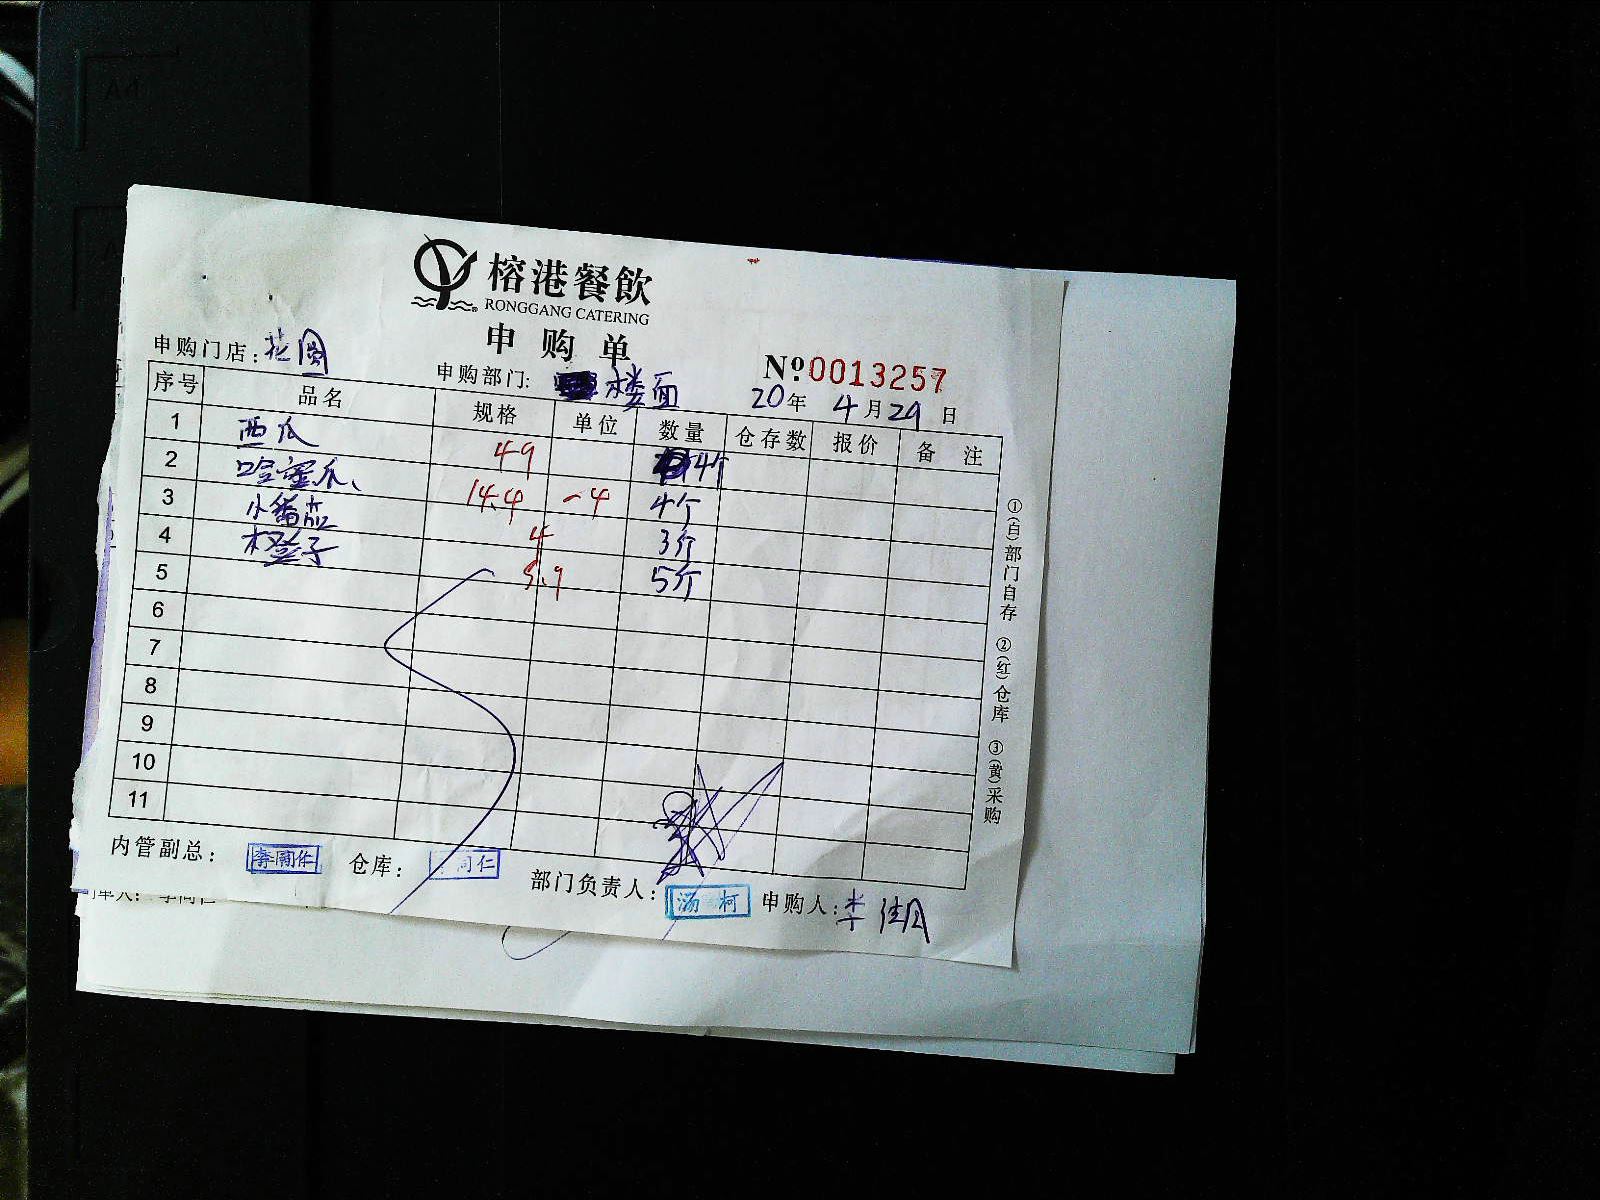 榕港餐飲
RONGGANG CATERING
申购单
申购门店：花圆 申购部门：楼面 Nº0013257
20年 4月29日
序号 品名 规格 单位 数量 仓存数 报价 备注
1 西瓜 49 4个
2 哈蜜瓜、 14.4 -4 4个
3 小番茄 4 3个
4 橙子 5.9 5个
5
6
7
8
9
10
11
①(白)部门自存 ②(红)仓库 ③(黄)采购
内管副总： 李同仁 仓库： 同仁 部门负责人： 汤柯 申购人：李佳
单人： 李同仁
A4